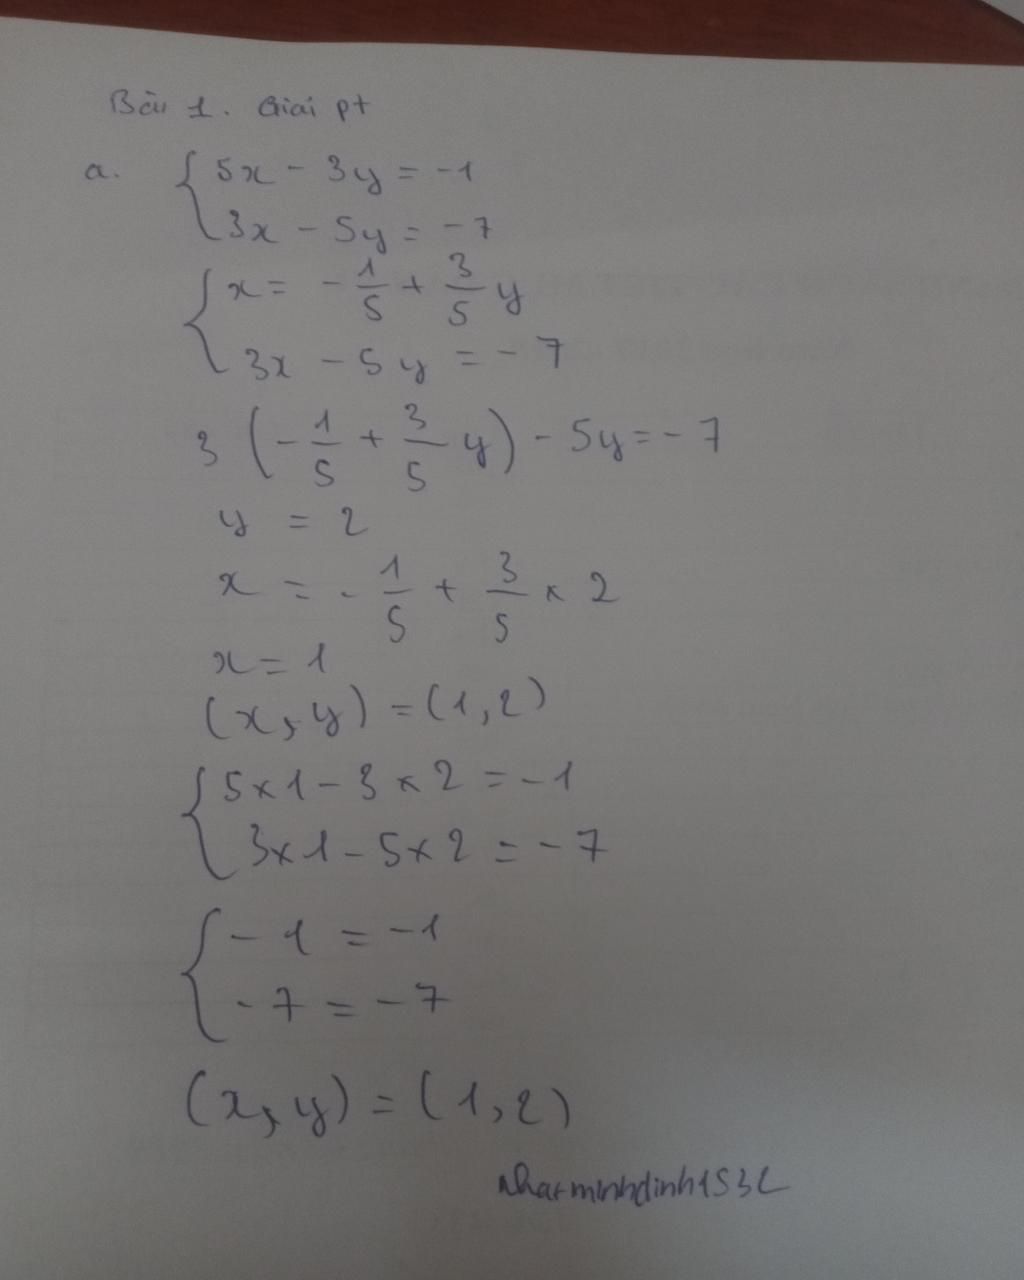 Bài 1. Giải pt
a. { 5x - 3y = -1
3x - 5y = -7
{ x = - 1/5 + 3/5 y
3x - 5y = - 7
3 (- 1/5 + 3/5 y) - 5y = - 7
y = 2
x = - 1/5 + 3/5 × 2
x = 1
(x, y) = (1, 2)
{ 5×1 - 3×2 = -1
3×1 - 5×2 = -7
{ -1 = -1
-7 = -7
(x, y) = (1, 2)